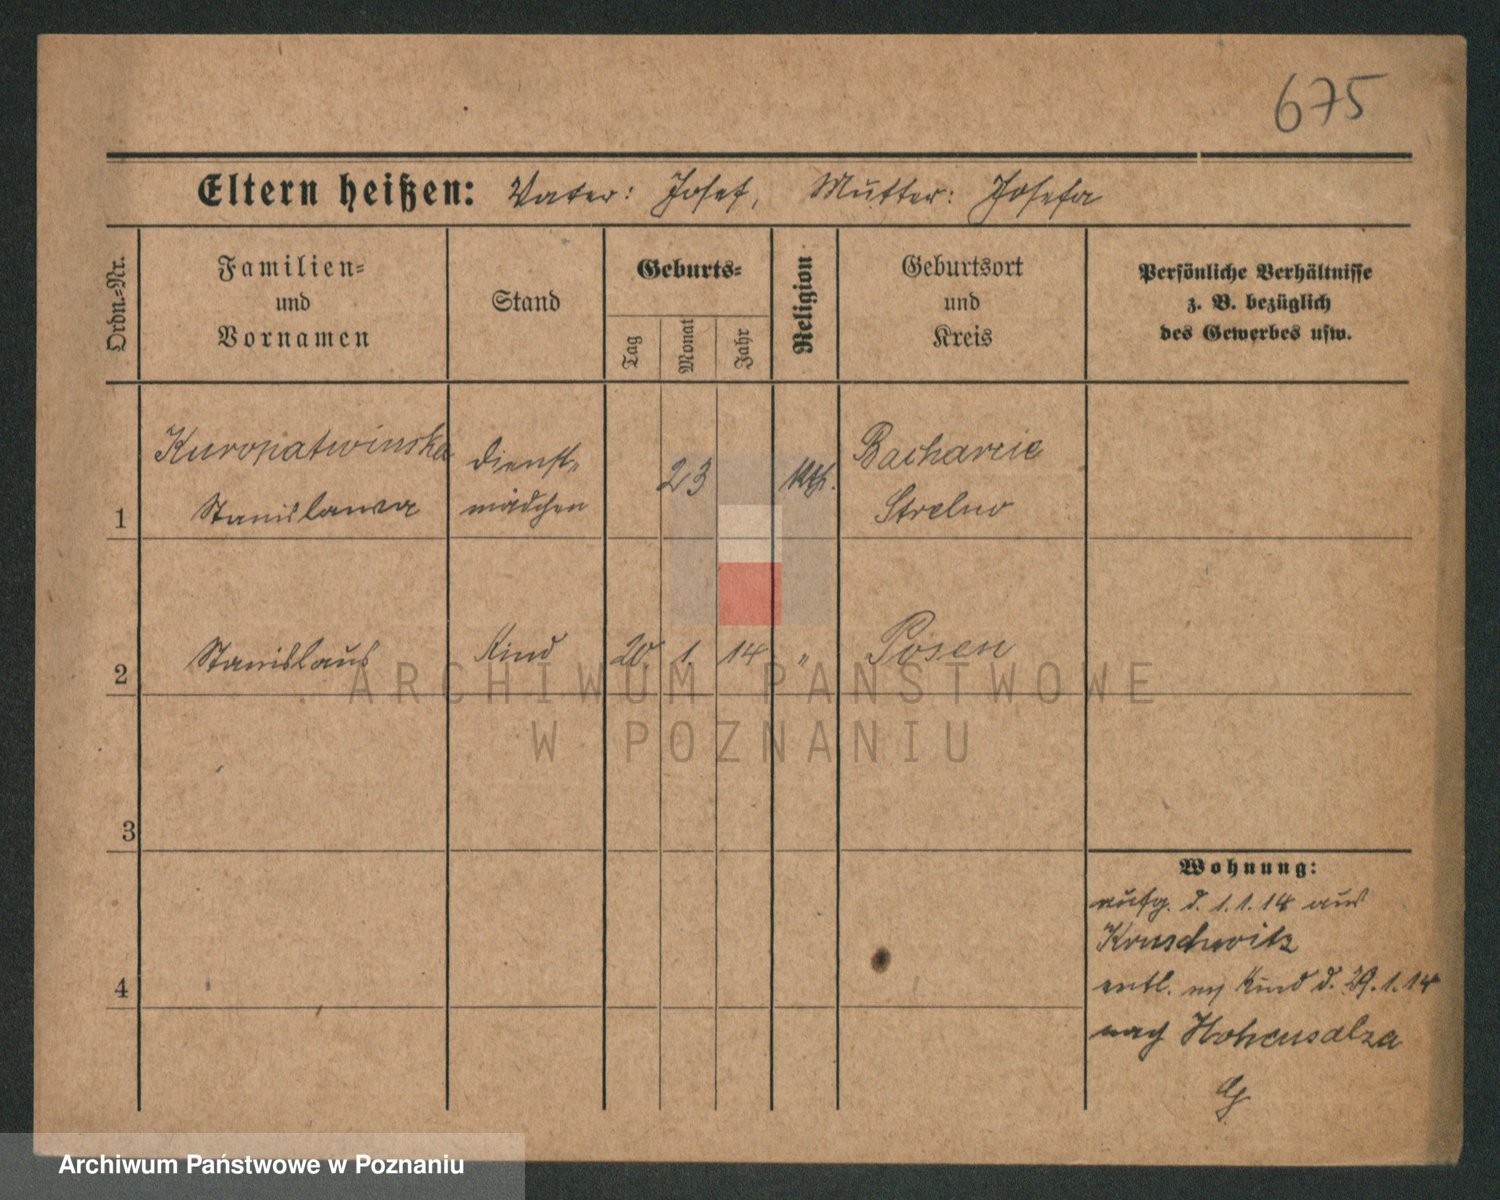 675
Eltern heißen: Vater: Josef, Mutter: Josefa
Ordn.-Nr.
Familien-
und
Vornamen
Stand
Geburts-
Tag
Monat
Jahr
Religion
Geburtsort
und
Kreis
Persönliche Verhältnisse
z. B. bezüglich
des Gewerbes usw.
1
Kuropatwinska
Stanislawa
Dienst-
mädchen
23
kth.
Bacharcie
Strelno
2
Stanislaus
Kind
20
1
14
"
Posen
ARCHIWUM PAŃSTWOWE
W POZNANIU
3
4
Wohnung:
aufg. d. 1.1.14 aus
Kruschwitz
entl. m Kind d. 29.1.14
nach Hohensalza
Archiwum Państwowe w Poznaniu